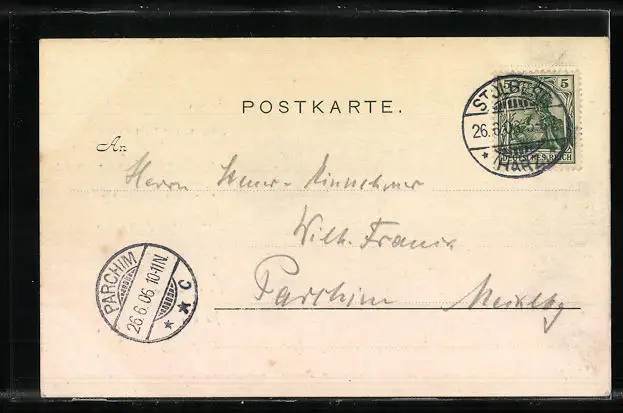 POSTKARTE.
5 5
DEUTSCHES REICH
STOLBERG
26.6.06
* (HARZ)
An
Herrn Steuer-Einnehmer
Wilh. Francke
Parchim Mecklbg
PARCHIM
26.6.06. 10-11 N.
* * C